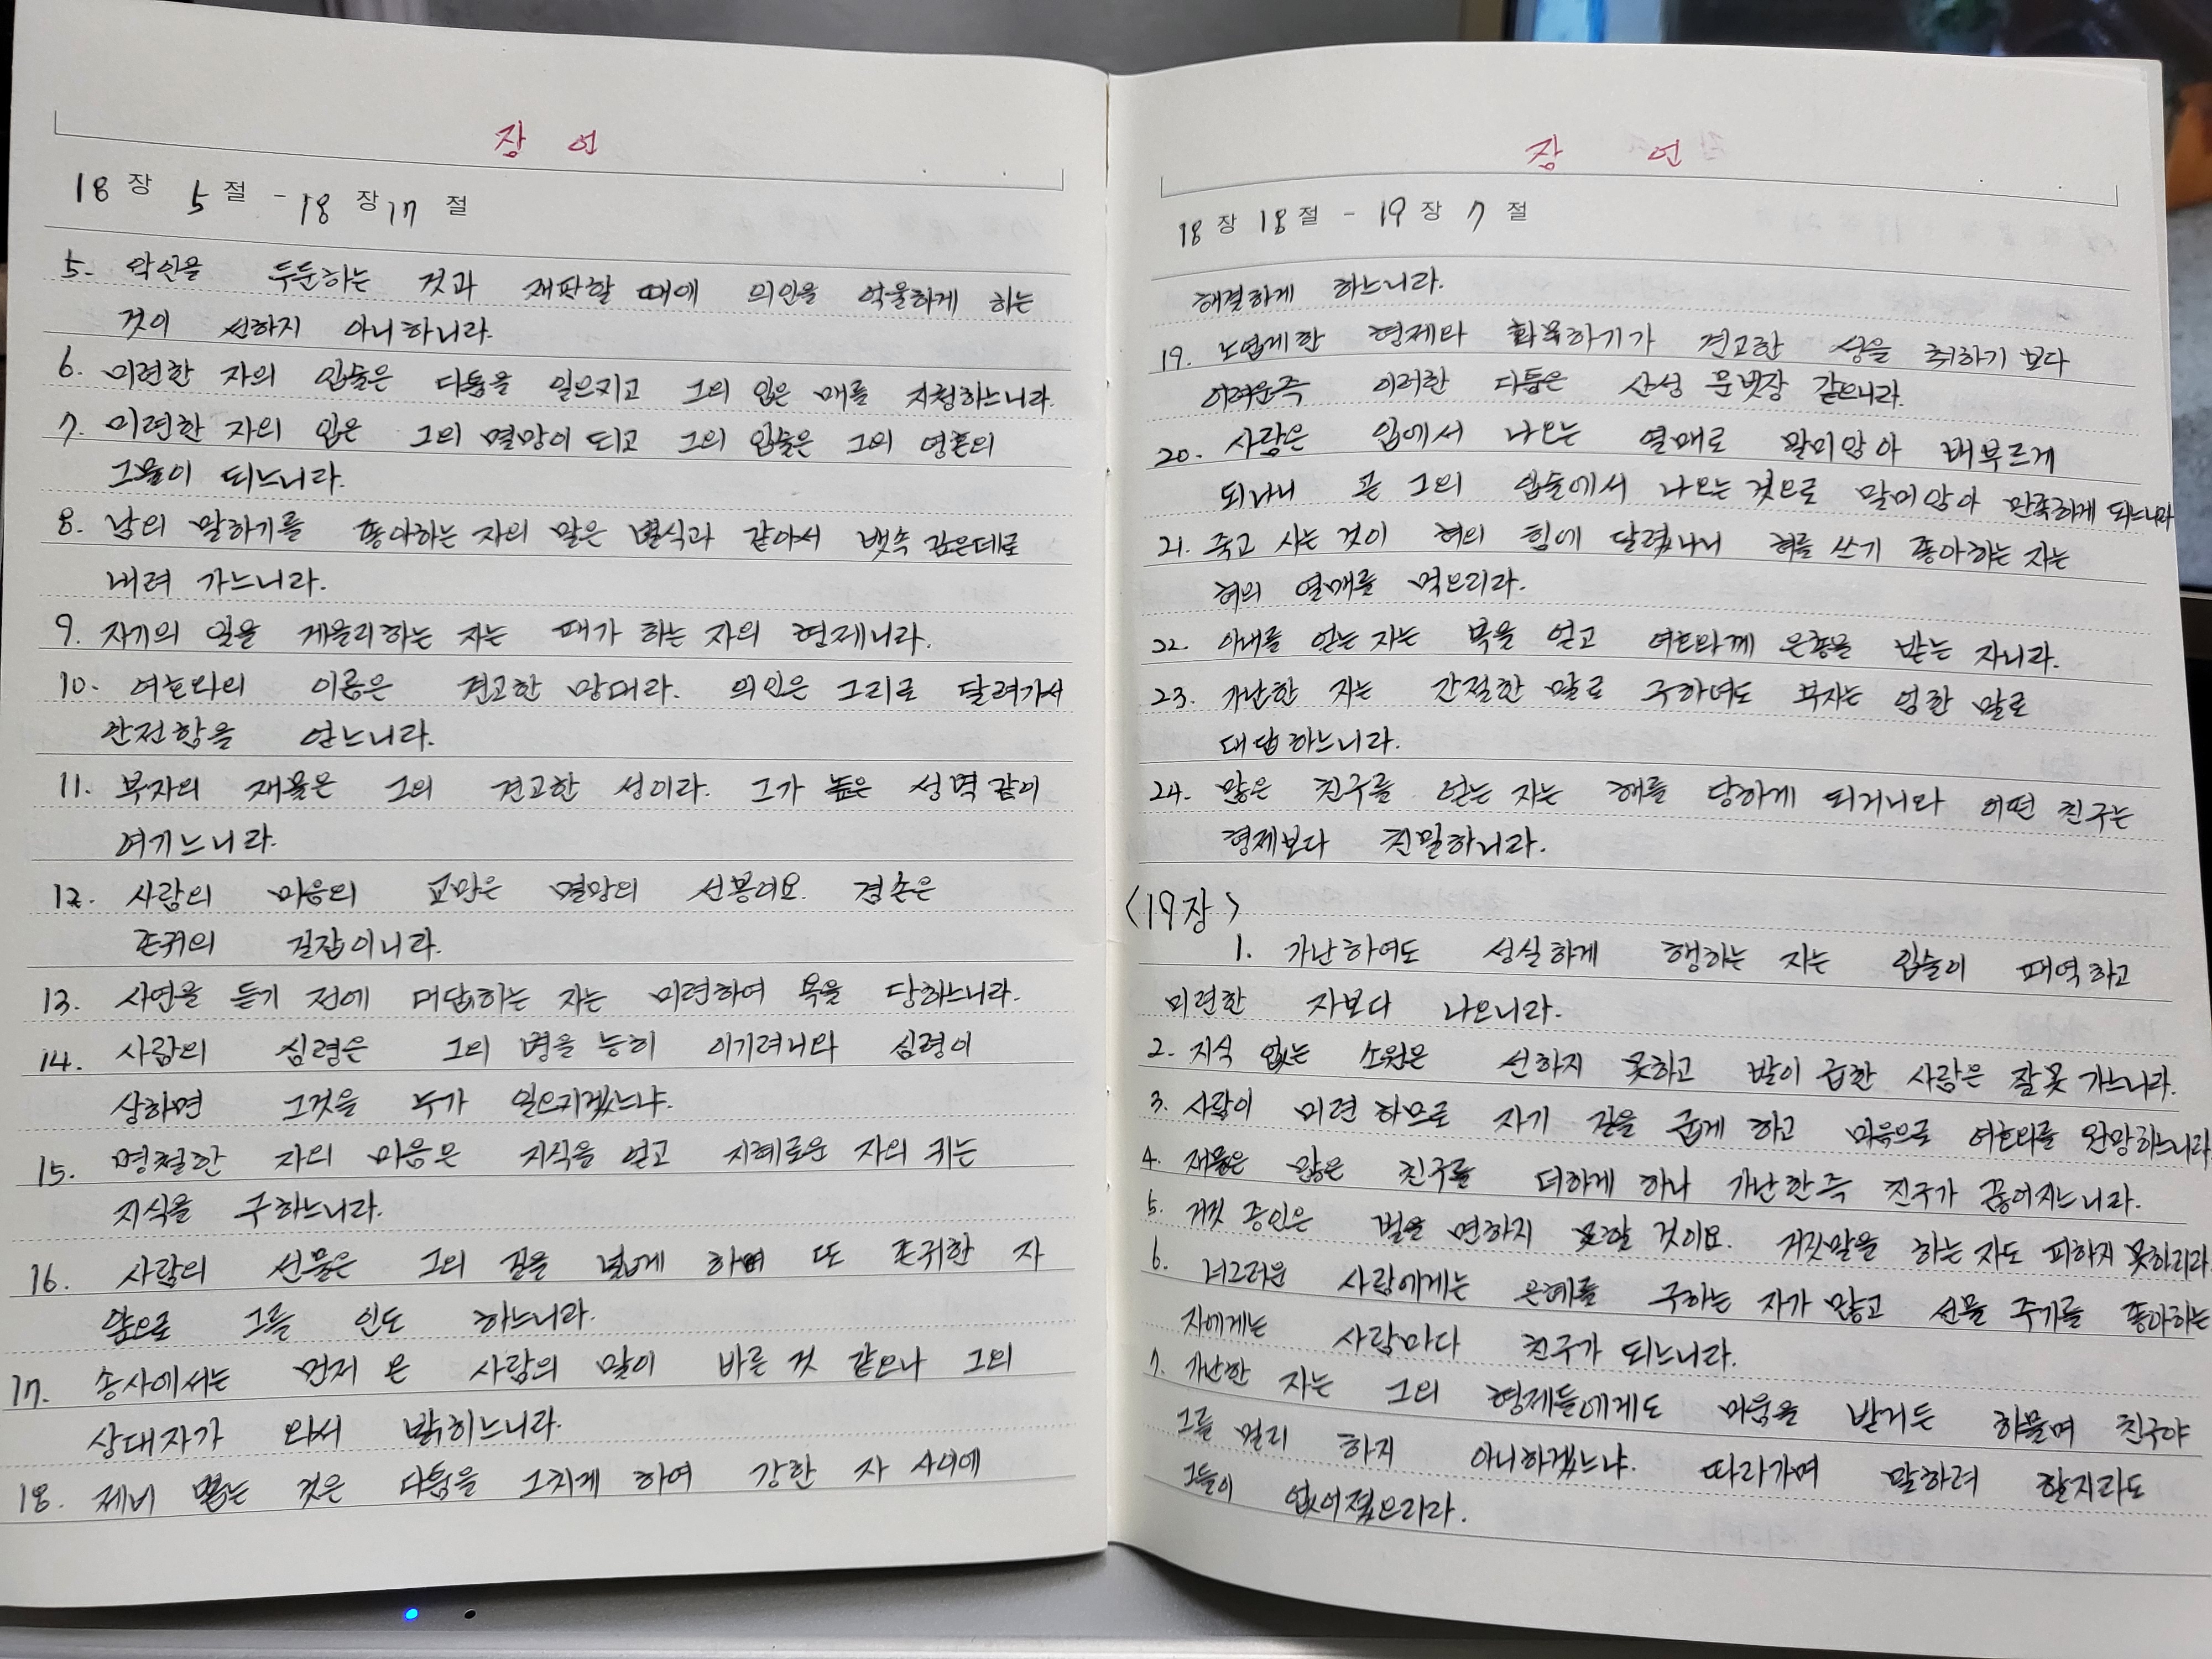 잠 언
18 장 5 절 - 18 장 17 절
5. 악인을 두둔하는 것과 재판할 때에 의인을 억울하게 하는
것이 선하지 아니하니라.
6. 미련한 자의 입술은 다툼을 일으키고 그의 입은 매를 자청하느니라.
7. 미련한 자의 입은 그의 멸망이 되고 그의 입술은 그의 영혼의
그물이 되느니라.
8. 남의 말하기를 좋아하는 자의 말은 별식과 같아서 뱃속 깊은데로
내려 가느니라.
9. 자기의 일을 게을리하는 자는 패가 하는 자의 형제니라.
10. 여호와의 이름은 견고한 망대라. 의인은 그리로 달려가서
안전함을 얻느니라.
11. 부자의 재물은 그의 견고한 성이라. 그가 높은 성벽 같이
여기느니라.
12. 사람의 마음의 교만은 멸망의 선봉이요. 겸손은
존귀의 길잡이니라.
13. 사연을 듣기 전에 대답하는 자는 미련하여 욕을 당하느니라.
14. 사람의 심령은 그의 병을 능히 이기려니와 심령이
상하면 그것을 누가 일으키겠느냐.
15. 명철한 자의 마음은 지식을 얻고 지혜로운 자의 귀는
지식을 구하느니라.
16. 사람의 선물은 그의 길을 넓게 하며 또 존귀한 자
앞으로 그를 인도 하느니라.
17. 송사에서는 먼저 온 사람의 말이 바른 것 같으나 그의
상대자가 와서 밝히느니라.
18. 제비 뽑는 것은 다툼을 그치게 하여 강한 자 사이에
잠 언
18 장 18 절 - 19 장 7 절
해결하게 하느니라.
19. 노엽게한 형제와 화목하기가 견고한 성을 취하기 보다
어려운즉 이러한 다툼은 산성 문빗장 같으니라.
20. 사람은 입에서 나오는 열매로 말미암아 배부르게
되나니 곧 그의 입술에서 나오는 것으로 말미암아 만족하게 되느니라
21. 죽고 사는 것이 혀의 힘에 달렸나니 혀를 쓰기 좋아하는 자는
혀의 열매를 먹으리라.
22. 아내를 얻는 자는 복을 얻고 여호와께 은총을 받는 자니라.
23. 가난한 자는 간절한 말로 구하여도 부자는 엄한 말로
대답하느니라.
24. 많은 친구를 얻는 자는 해를 당하게 되거니와 어떤 친구는
형제보다 친밀하니라.
<19장>
1. 가난하여도 성실하게 행하는 자는 입술이 패역하고
미련한 자보다 나으니라.
2. 지식 없는 소원은 선하지 못하고 발이 급한 사람은 잘못 가느니라.
3. 사람이 미련 하므로 자기 길을 굽게 하고 마음으로 여호와를 원망하느니라
4. 재물은 많은 친구를 더하게 하나 가난한즉 친구가 끊어지느니라.
5. 거짓 증인은 벌을 면하지 못할 것이요. 거짓말을 하는 자도 피하지 못하리라
6. 너그러운 사람에게는 은혜를 구하는 자가 많고 선물 주기를 좋아하는
자에게는 사람마다 친구가 되느니라.
7. 가난한 자는 그의 형제들에게도 미움을 받거든 하물며 친구야
그를 멀리 하지 아니하겠느냐. 따라가며 말하려 할지라도
그들이 없어졌으리라.